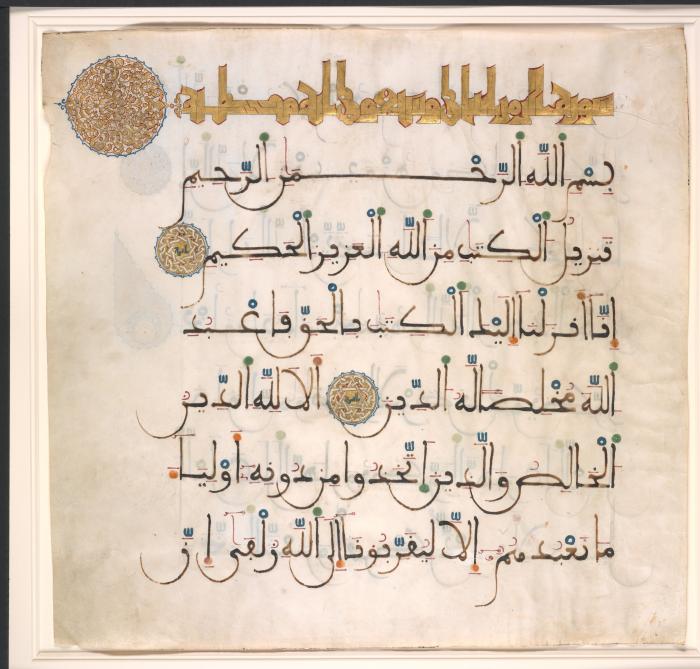 سورة الزمر
بسم الله الرحمن الرحيم
تنزيل الكتب من الله العزيز الحكيم
انا انزلنا اليك الكتب بالحق فاعبد
الله مخلصا له الدين الا لله الدين
الخالص والذين اتخذوا من دونه اوليا
ما نعبدهم الا ليقربونا الى الله زلفى ان